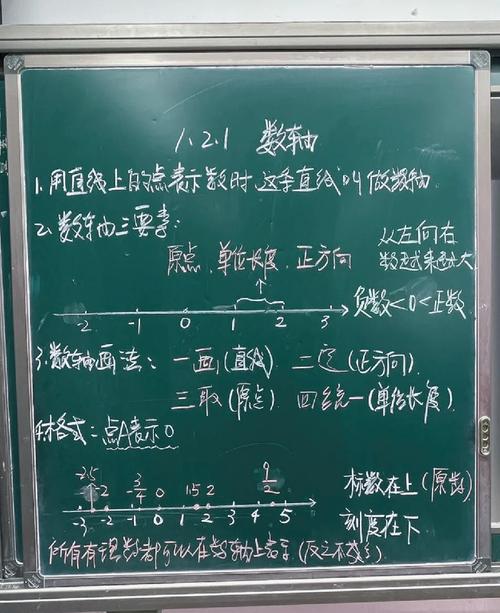 1.2.1 数轴
1.用直线上的点表示数时,这条直线叫做数轴
2.数轴三要素:
原点、单位长度、正方向
从左向右
数越来越大
-2 -1 0 1 2 3
负数<0<正数
3.数轴画法: 一画(直线) 二定(正方向)
三取(原点) 四统一(单位长度)
格式:点A表示0
-2.5 -2 -3/4 0 1.5 2 9/2
标数在上(原数)
-3 -2 -1 0 1 2 3 4 5
刻度在下
所有有理数都可以在数轴上表示(反之不成立)